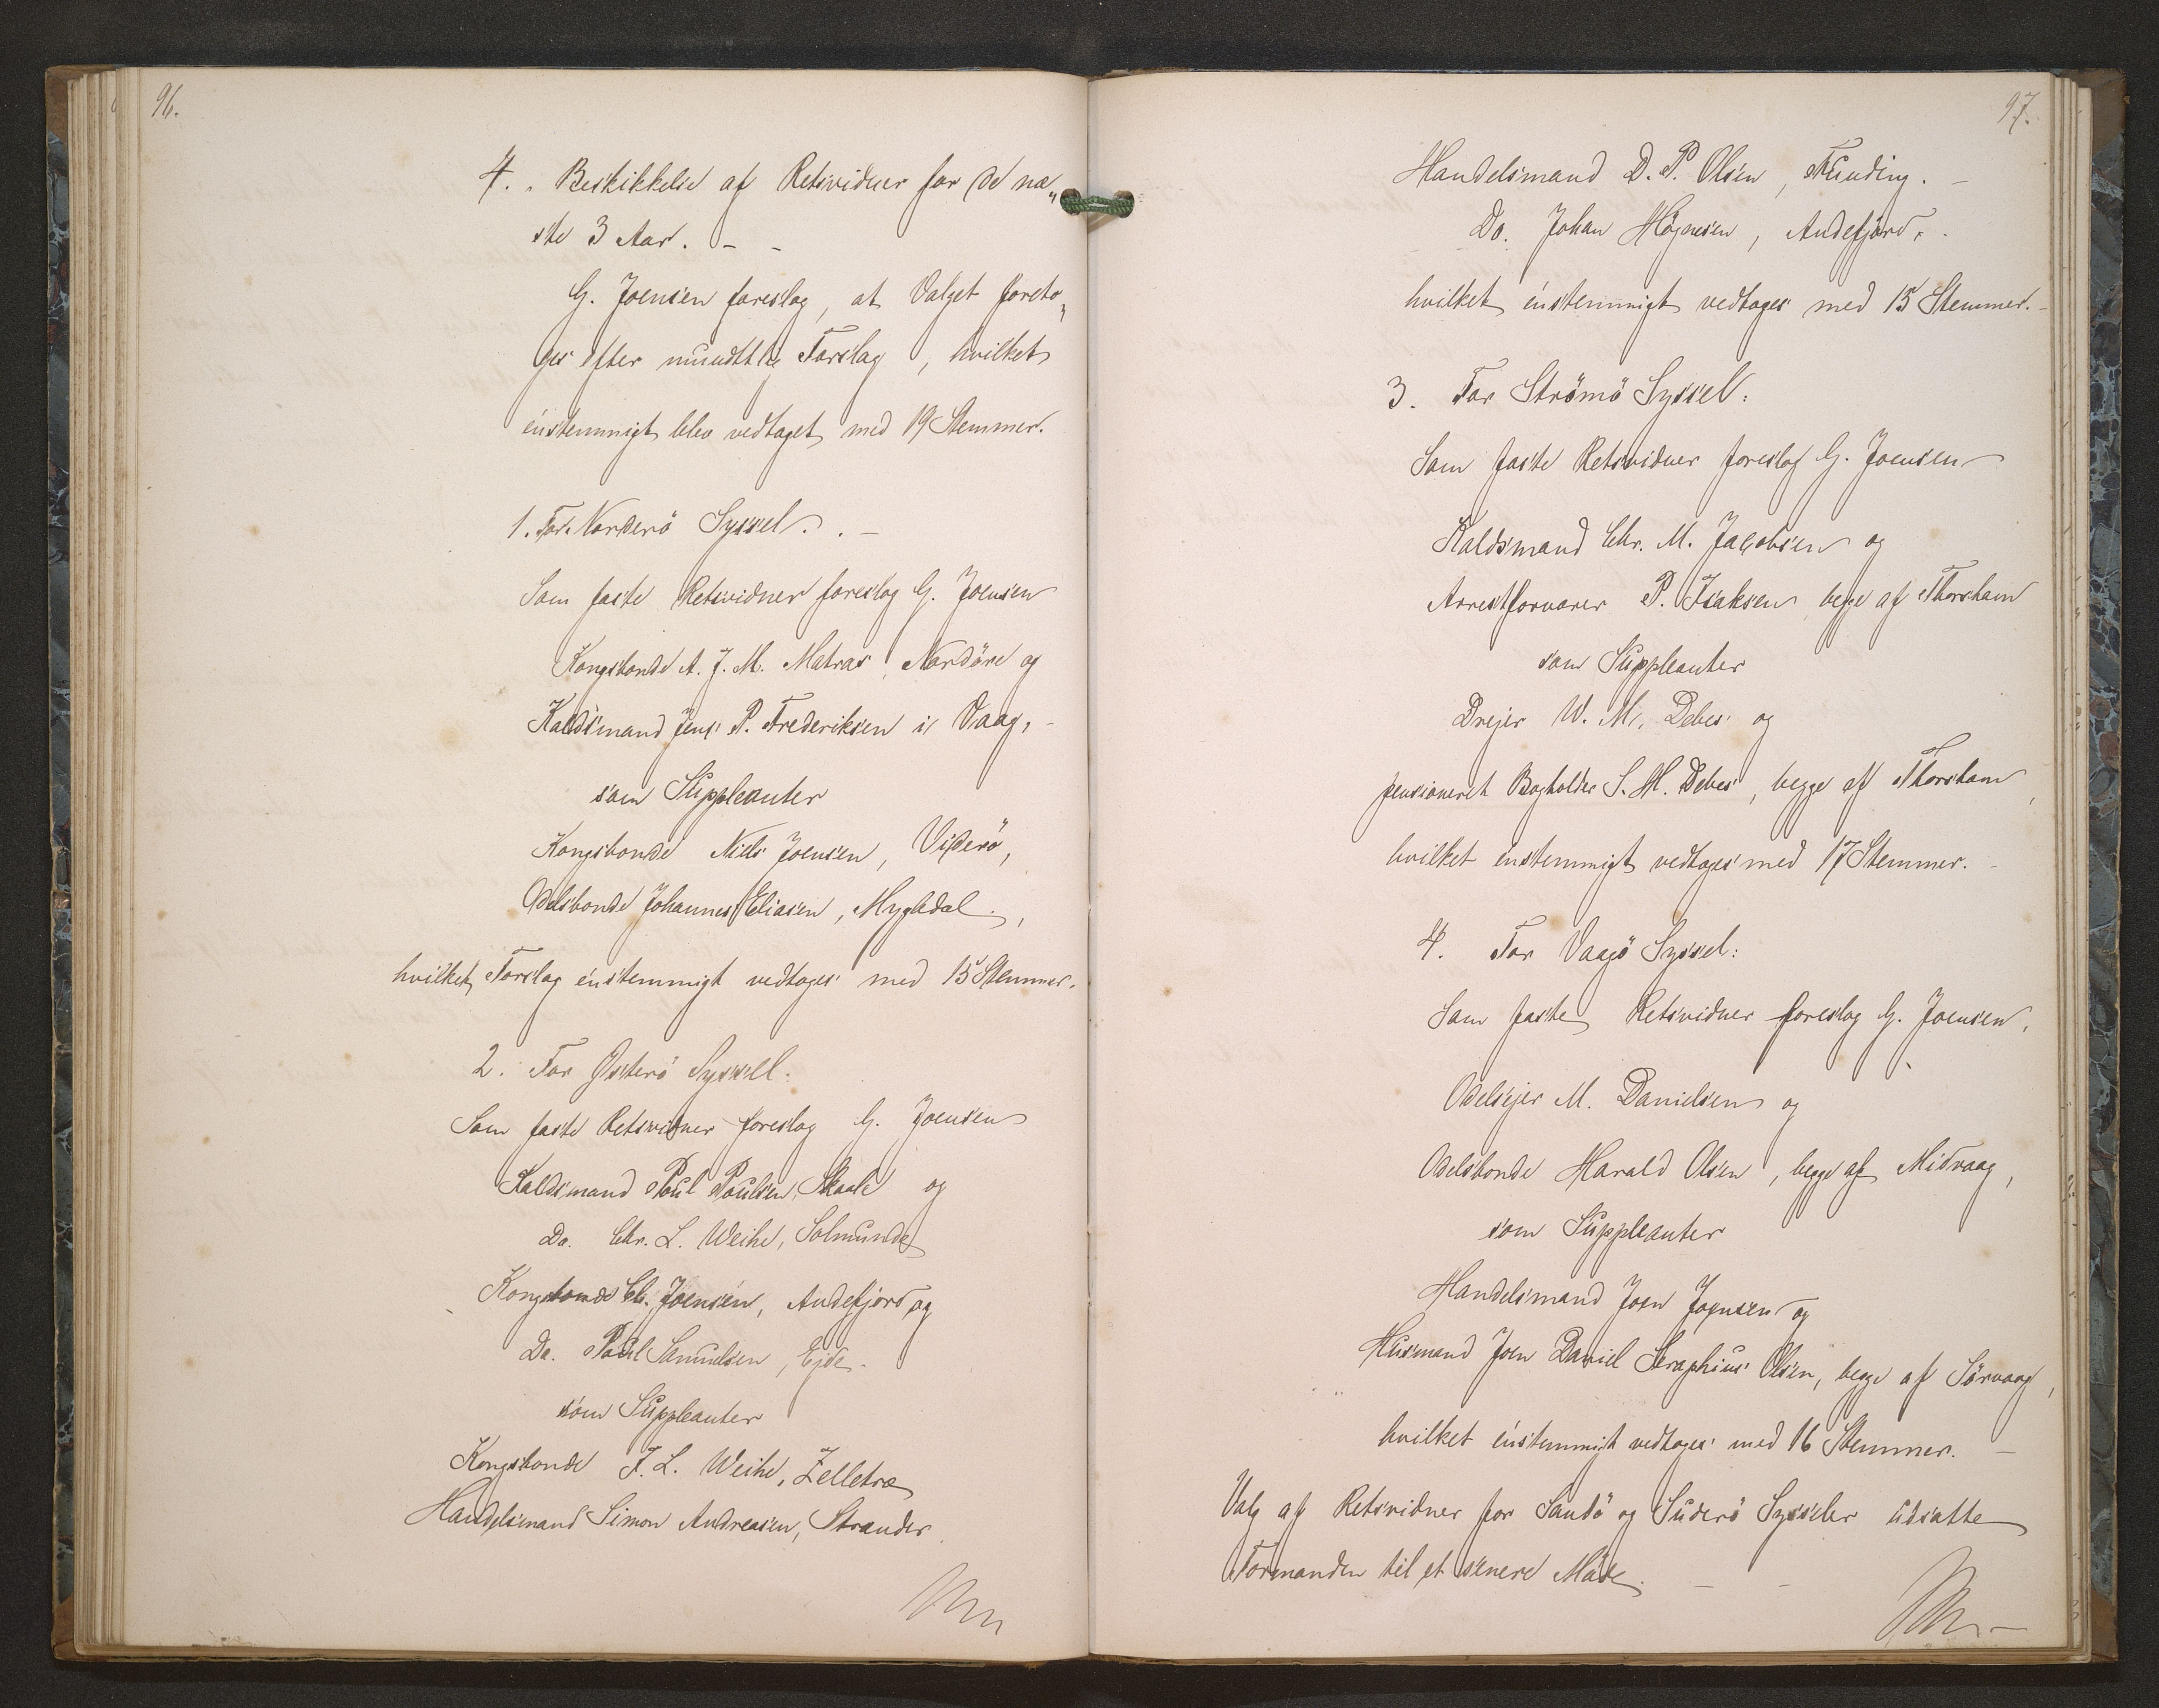 96.
4. Beskikkelse af Retsvidner for de næ„
ste 3 Aar. – –
G. Joensen foreslog, at Valget foreto„
ges efter mundtlig Forslag, hvilket
énstemmigt blev vedtaget med 19 Stemmer.
1. For Norderö Syssel. –
Som faste Retsvidner foreslog G. Joensen
Kongsbonde A. J. M. Matras, Nordöre og
Kaldsmand Jens P. Frederiksen i Vaag, –
som Suppleanter
Kongsbonde Niels Joensen, Viderö,
Odelsbonde Johannes Eliasen, Mygledal,
hvilket Forslag énstemmigt vedtoges med 15 Stemmer.
2. For Østerö Syssel.
Som faste Retsvidner foreslog G. Joensen
Kaldsmand Poul Poulsen, Skaale og
Do. Chr. L. Weihe, Solmunde
Kongsbonde Chr. Joensen, Andefjord og
Do. Poul Samuelsen, Ejde.
som Suppleanter
Kongsbonde J. L. Weihe, Zelletræ
Handelsmand Simon Andreasen, Strander.
97.
Handelsmand D. P. Olsen, Funding. –
Do. Johan Högnesen, Andefjord.
hvilket énstemmigt vedtoges med 15 Stemmer. –
3. For Strömö Syssel:
Som faste Retsvidner foreslog G. Joensen
Kaldsmand Chr. M. Jacobsen og
Arrestforvarer P. Isaksen, begge af Thorshavn
som Suppleanter
Drejer W. M. Debes og
pensioneret Bogholder S. H. Debes, begge af Thorshavn,
hvilket enstemmigt vedtoges med 17 Stemmer. –
4. For Vaagö Syssel:
Som faste Retsvidner foreslog G. Joensen.
Odelsejer M. Danielsen og
Odelsbonde Harald Olsen, begge af Midvaag,
som Suppleanter
Handelsmand Joen Joensen og
Husmand Joen Daniel Seraphius Olsen, begge af Sörvaag,
hvilket énstemmigt vedtoges med 16 Stemmer. –
Valg af Retsvidner for Sandö og Suderö Sysseler udsatte
Formanden til et senere Möde. – –